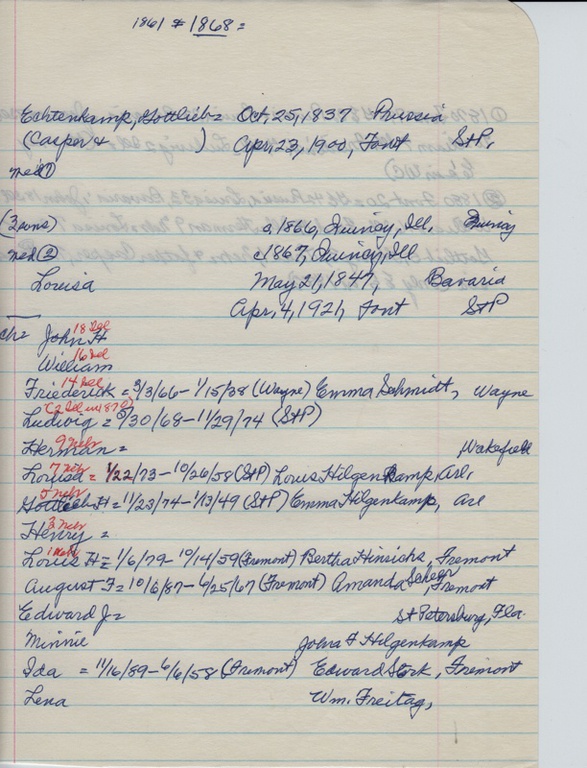 1861 * 1868 =
Echtenkamp, Gottlieb = Oct, 25, 1837 Prussia
(Casper & ) Apr, 23, 1900, Font StP,
med ①
(3 sons) c 1866, Quincy, Ill, Quincy
med ② c1867, Quincy, Ill
Louisa May 21, 1847, Bavaria
Apr, 4, 1921, Font StP
18 Ill
ch = John H
16 Ill
William
14 Ill
Friederick = 3/3/66 - 1/15/38 (Wayne) Emma Schmidt, Wayne
(2 Ill in 1870)
Ludwig = /30/68 - 11/29/74 (StP)
9 nebr
Herman = , Wakefield
7 nebr
Louisa = 1/22/73 - 10/26/58 (StP) Louis Hilgenkamp, Arl,
5 nebr
Gottlieb H = 11/23/74 - 1/13/49 (StP) Emma Hilgenkamp, Arl
3 nebr
Henry =
1 nebr
Louis H = 1/6/79 - 10/14/59 (Fremont) Bertha Hinsichs, Fremont
August F = 10/6/87 - 6/25/67 (Fremont) Amanda Scheer, Fremont
Edward J = St Petersburg, Fla
Minnie John F Hilgenkamp
Ida = 11/16/89 - 6/6/58 (Fremont) Edward Stork, Fremont
Lena Wm. Freitag,